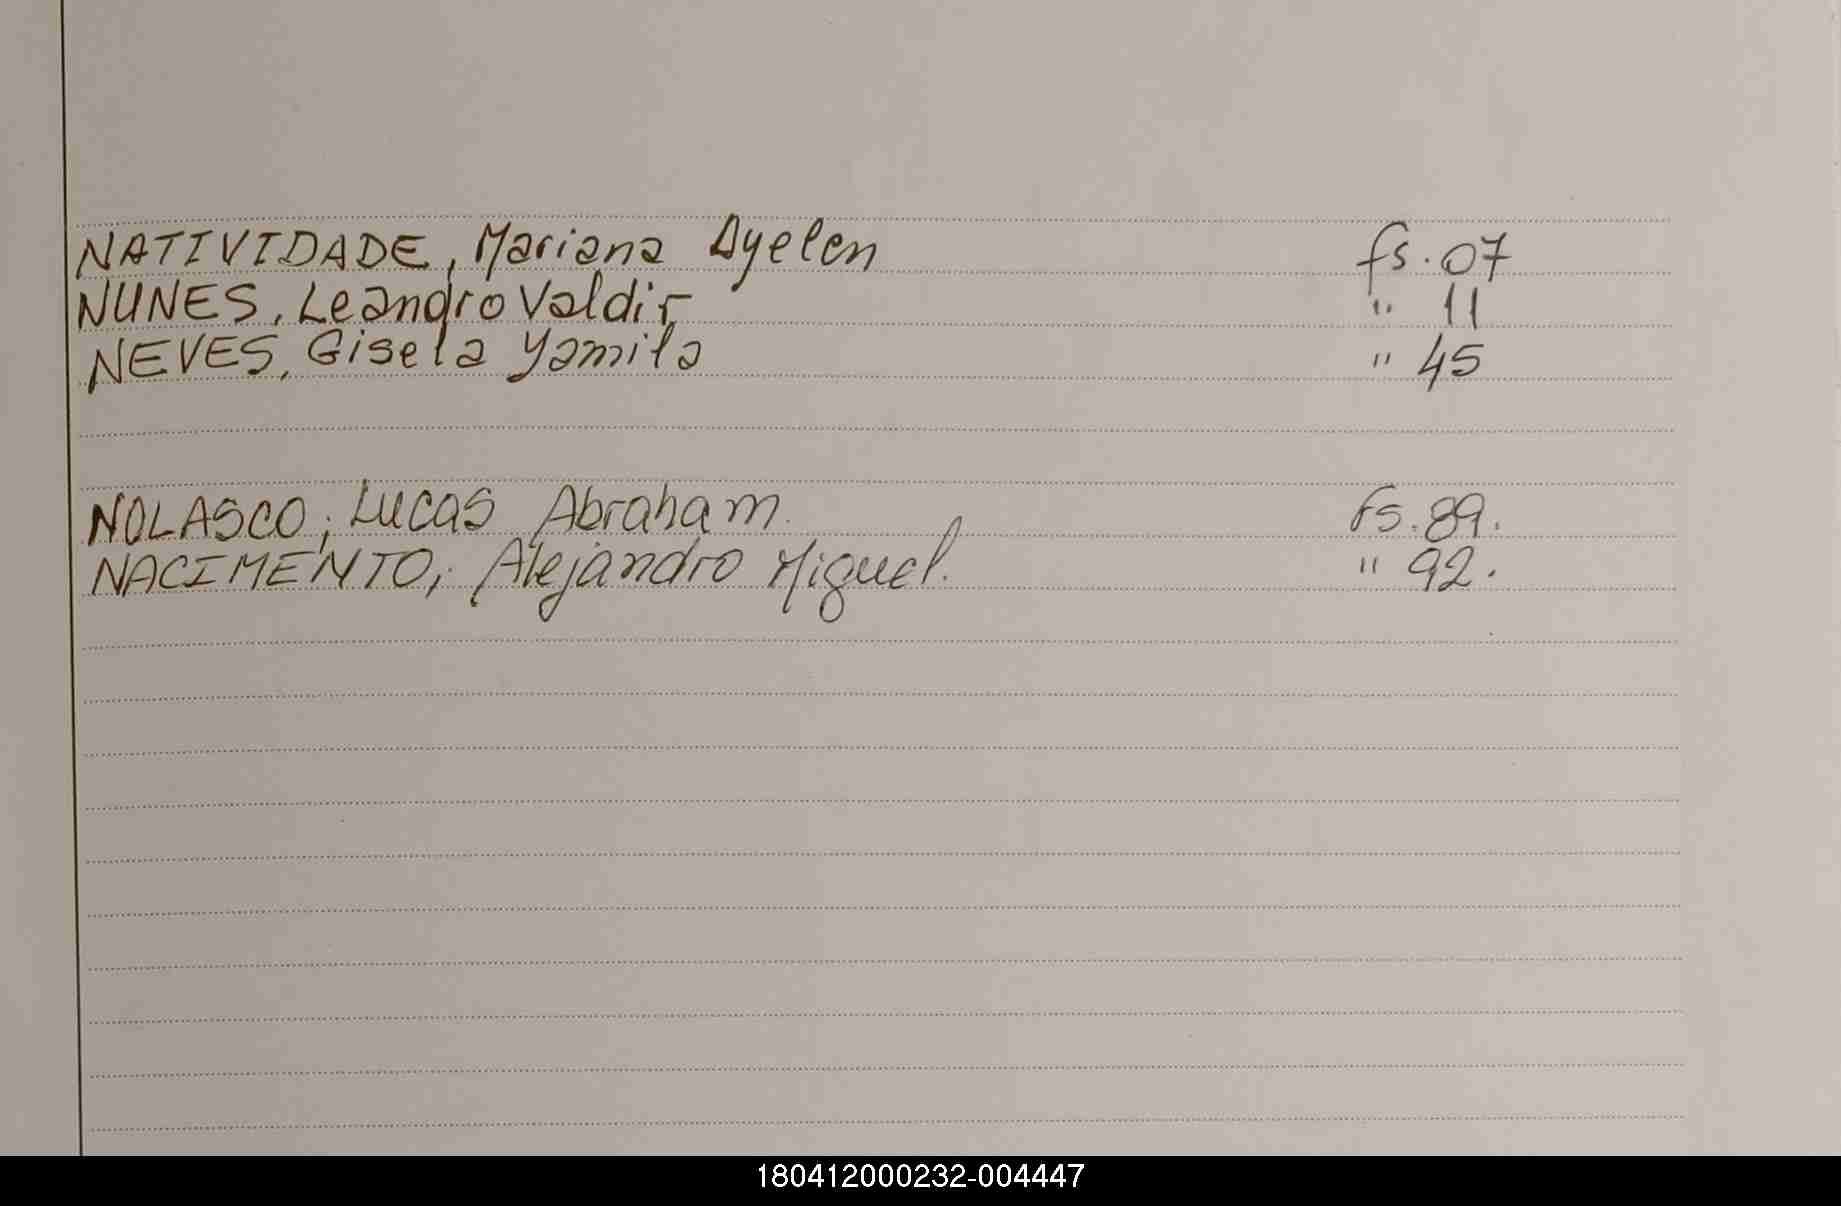 NATIVIDADE, Mariana Ayelen fs. 07
NUNES, Leandro Valdir " 11
NEVES, Gisela Yamila " 45
NOLASCO, Lucas Abraham. fs. 89.
NACIMENTO, Alejandro Miguel. " 92.
180412000232-004447